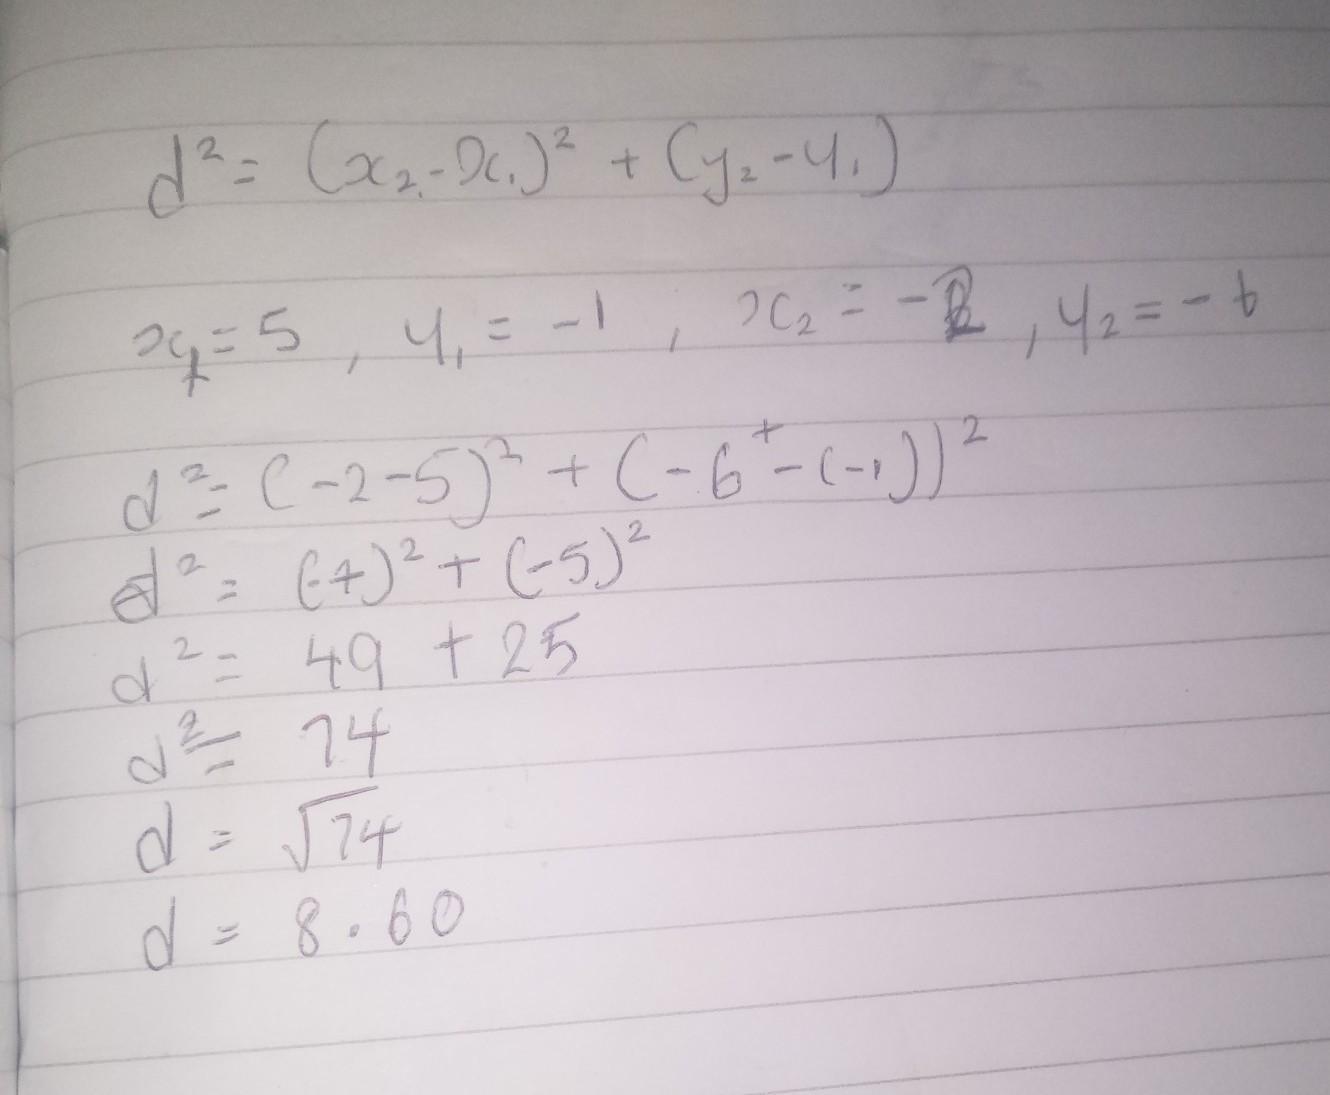 d² = (x₂ - x₁)² + (y₂ - y₁)
x₁ = 5 , y₁ = -1 , x₂ = -2 , y₂ = -6
d² = (-2-5)² + (-6 + -(-1))²
d² = (-7)² + (-5)²
d² = 49 + 25
d² = 74
d = √74
d = 8.60